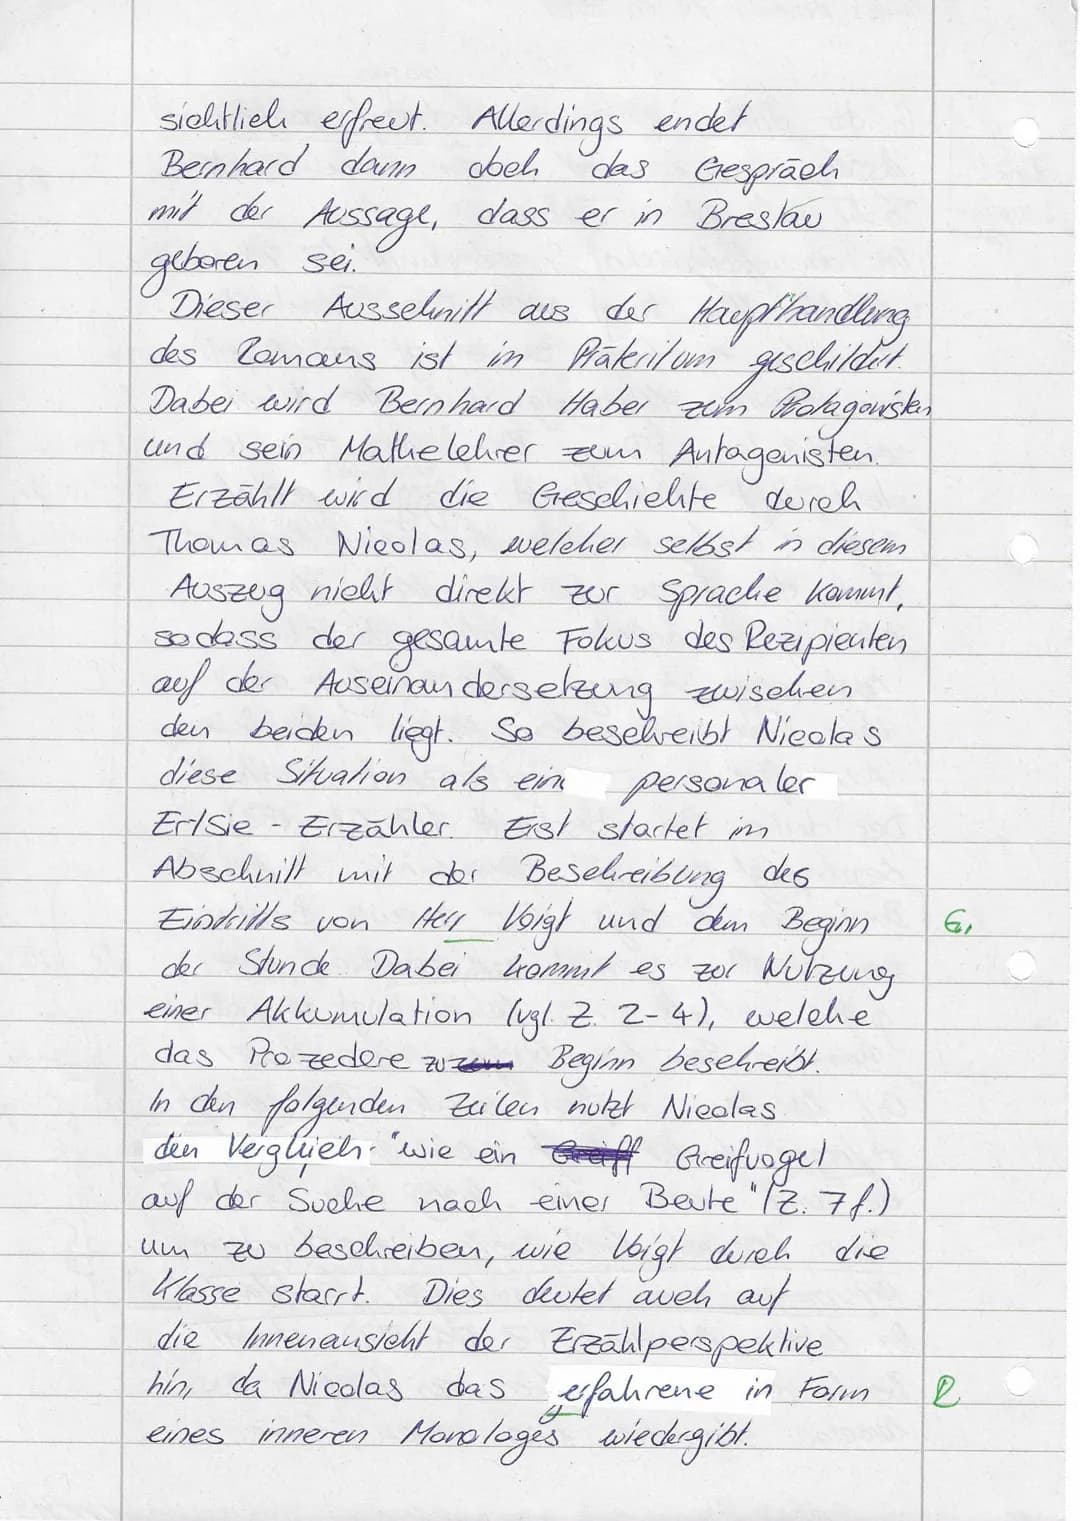 sichtlich erfreut. Allerdings endet
Bernhard dann doch das Gespräch
mit der Aussage, dass er in Breslau
geboren sei.
Dieser Ausschnitt aus der Haupthandlung
des Romans ist im Präteritum geschildert.
Dabei wird Bernhard Haber zum Protagonisten
und sein Mathelehrer zum Antagonisten.
Erzählt wird die Geschichte durch
Thomas Nicolas, welcher selbst in diesem
Auszug nicht direkt zur Sprache kommt,
sodass der gesamte Fokus des Rezipienten
auf der Auseinandersetzung zwischen
den beiden liegt. So beschreibt Nicolas
diese Situation als ein personaler
Er/Sie - Erzähler. Erst startet im
Abschnitt mit der Beschreibung des
Eintritts von Herr Voigt und dem Beginn G.
der Stunde. Dabei kommt es zur Nutzung
einer Akkumulation (vgl. Z. 2-4), welche
das Prozedere zu Beginn beschreibt.
In den folgenden Zeilen nutzt Nicolas
den Vergleich "wie ein Greifvogel
auf der Suche nach einer Beute" (Z. 7f.)
um zu beschreiben, wie Voigt durch die
Klasse starrt. Dies deutet auch auf
die Innenansicht der Erzählperspektive
hin, da Nicolas das erfahrene in Form R
eines inneren Monologes wiedergibt.